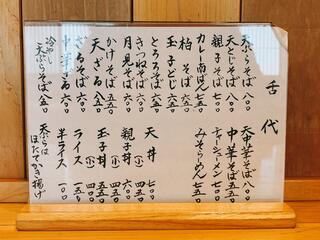 舌代
天ぷらそば 八〇〇
天とじそば 八〇〇
親子そば 七五〇
カレー南ばん 七五〇
柏そば 六五〇
玉子とじ 六五〇
とろろそば 六五〇
きつねそば 六〇〇
月見そば 六〇〇
かけそば 五五〇
天ざる 八五〇
ざるそば 六〇〇
中華ざる 六〇〇
冷やし
天ぷらそば 八五〇
天中華そば 八五〇
中華そば 五五〇
チャーシューメン 七五〇
みそらーめん 七五〇
天丼 七〇〇
(小)
親子丼 六〇〇
(小) 四五〇
玉子丼 五五〇
(小) 四五〇
ライス 一五〇
半ライス 一〇〇
天ぷらは
ほたてかき揚げ